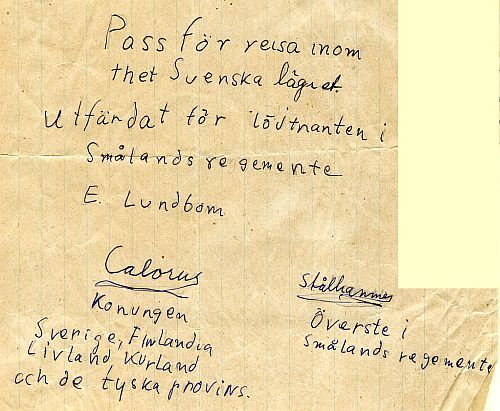 Pass för reisa inom
thet Svenska lägret.
Utfärdat för löjtnanten i
Smålands regemente
E. Lundbom
Calorus
Konungen
Sverige, Finlandia
Livland Kurland
och de tyska provins.
Stålhammer
Överste i
Smålands regemente